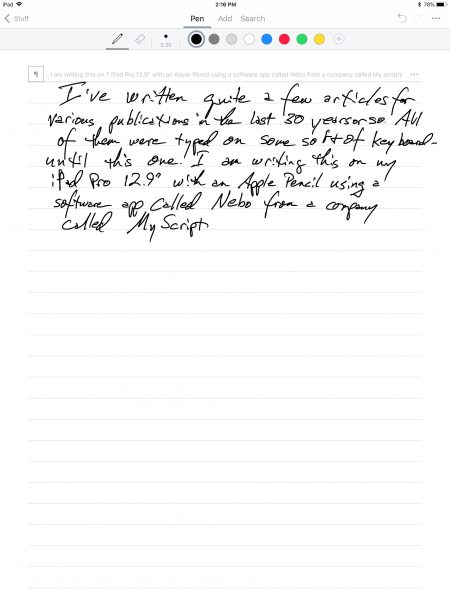 iPad
2:16 PM
78%
Stuff
Pen Add Search
0.35
¶ I am writing this on 7 iPad Pro 12.9" with an Apple Pencil using a software app called Nebo from a company called My scripts ...
I've written quite a few articles for
various publications in the last 30 years or so. All
of them were typed on some sort of keyboard-
until this one. I am writing this on my
iPad Pro 12.9" with an Apple Pencil using a
software app called Nebo from a company
called My Script